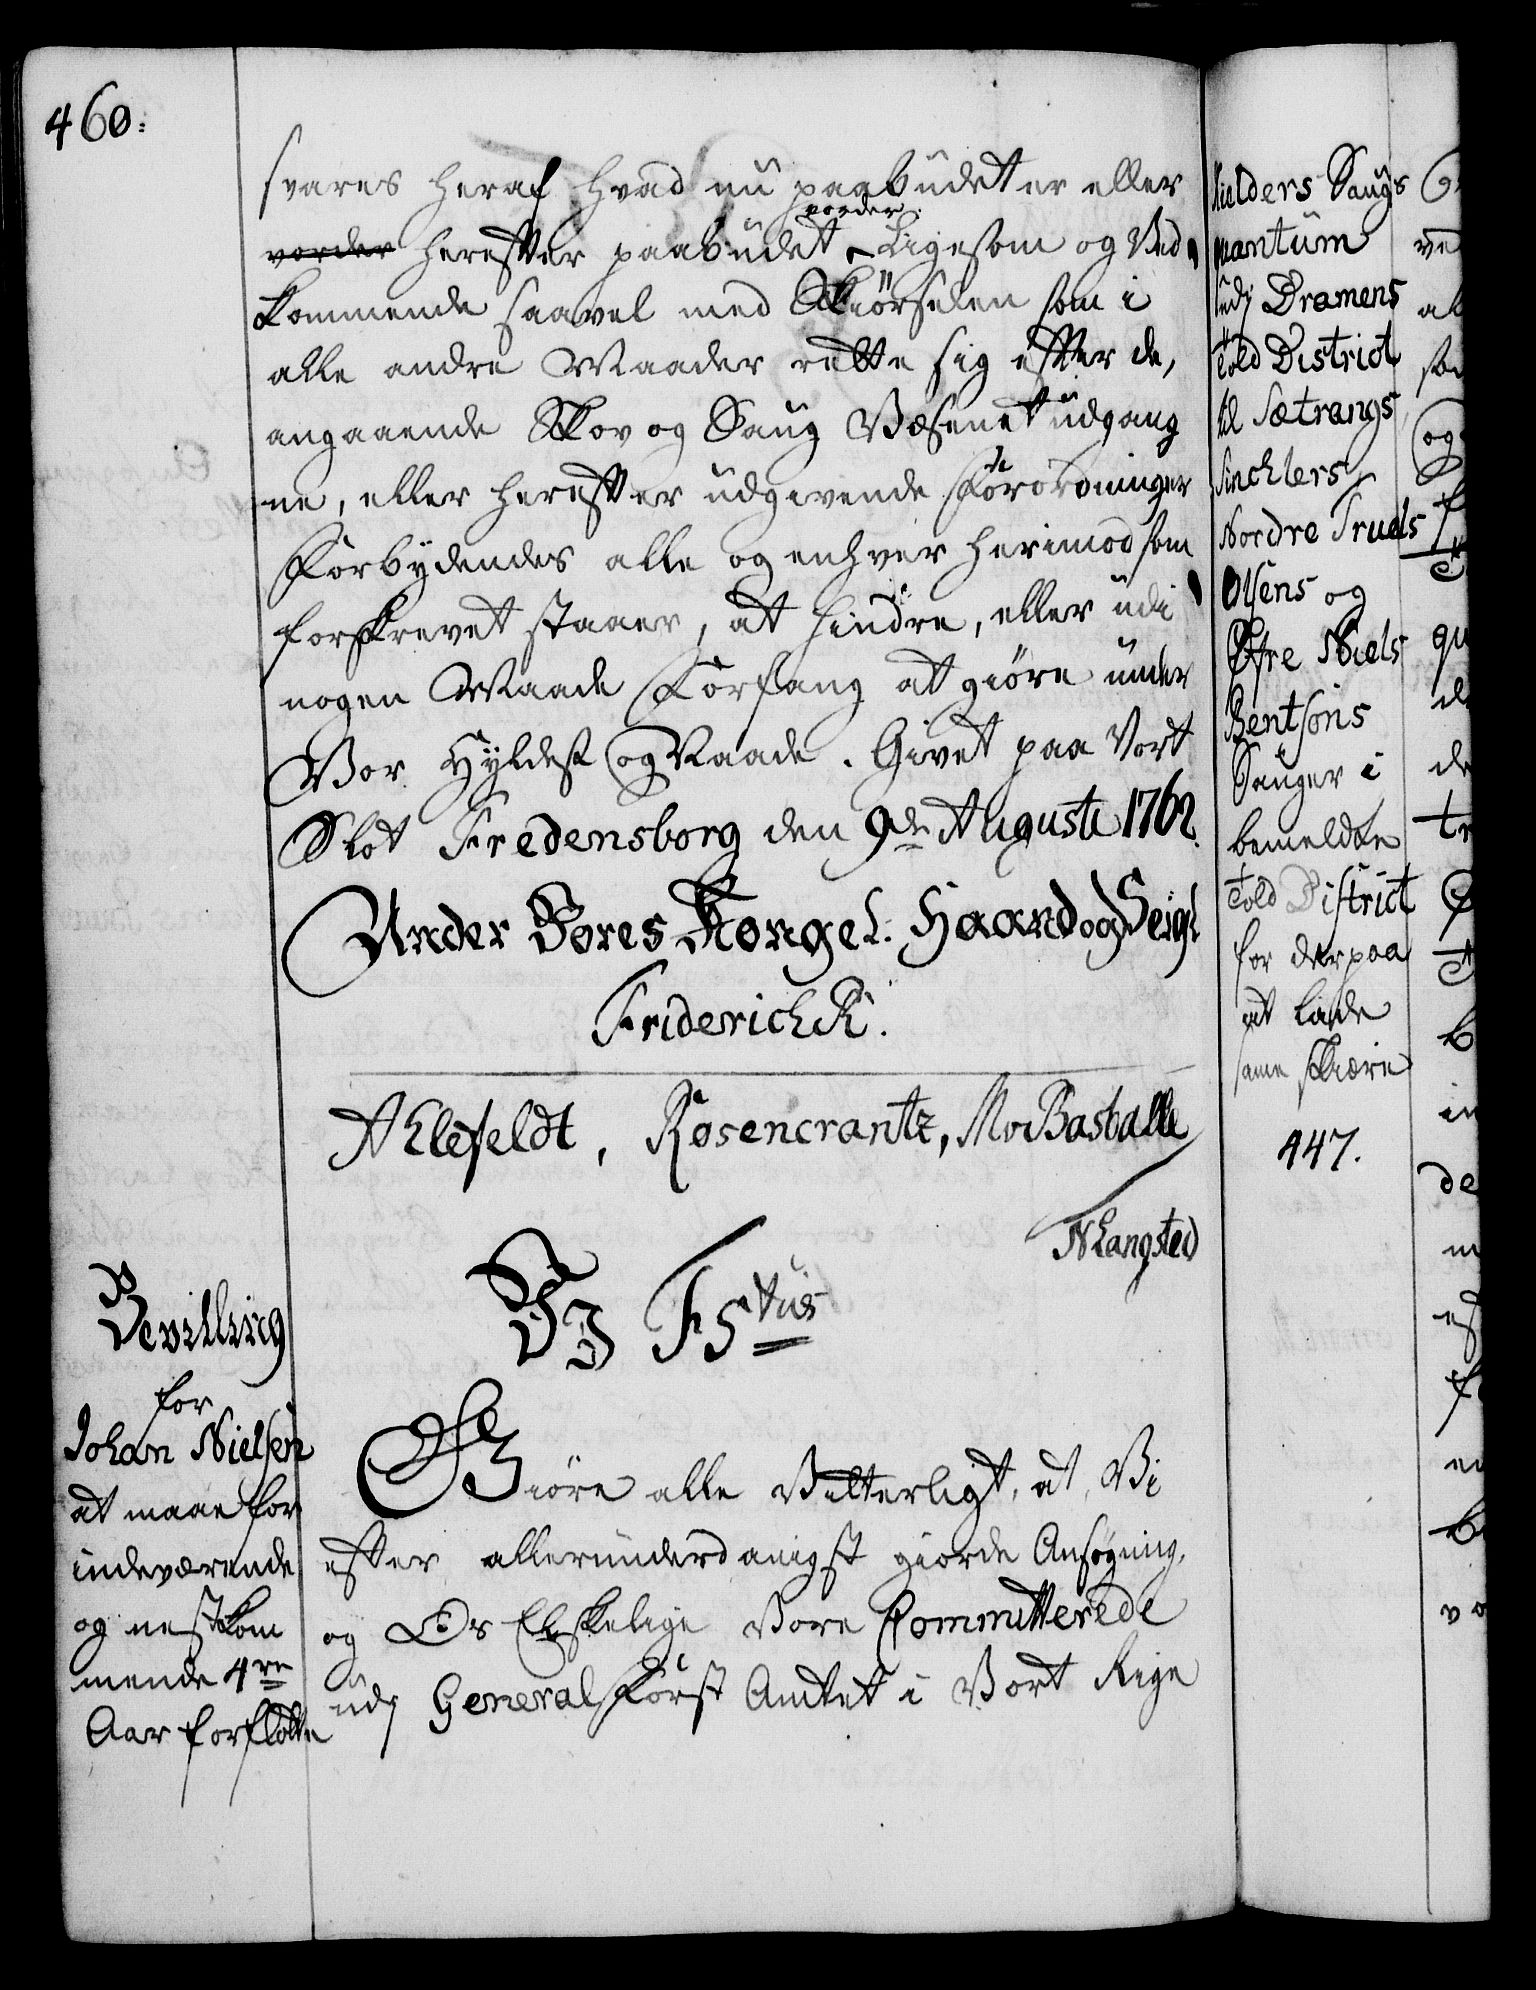 460.
svares heraf hvad nu paabudet er eller
vorder.
vorder herefter paabudet Ligesom og Ved
kommende saavel med Skiörselen som i
alle andre Maader rette sig efter de,
angaaende Skov og Saug Væsenet udgang
ne, eller herefter udgivende Forordninger
Forbydendes alle og enhver herimod som
forskrevet staaer, at hindre, eller udi
nogen Maade Forfang at giöre under
Vor Hyldest og Naade. Givet paa Vort
Slot Fredensborg den 9de Augusti 1762.
Under Vores Kongel. Haand og Seigl
Friderich R.
Ahlefeldt, Rosencrantz, Mv Basballe
N Langsted
Bevilling
for
Johan Nielsen
at maae for
indeværende
og nestkom
mende 4re
Aar forflötte
Vj F 5tus
Giöre alle Vitterligt, at Vi
efter allerunderdanigst giorde Ansøgning,
og Os Elskelige Vore Committerede
udj General Forst Amtet i Vort Rige
Kielders Saugs
quantum
udj Dramens
Told District
til Sætrangs
Sinchlers
Nordre Truels
Olsens og
Øfre Niels
Bentsöns
Sauger i
bemeldte
Told District
for derpaa
at lade
same skiære
447.